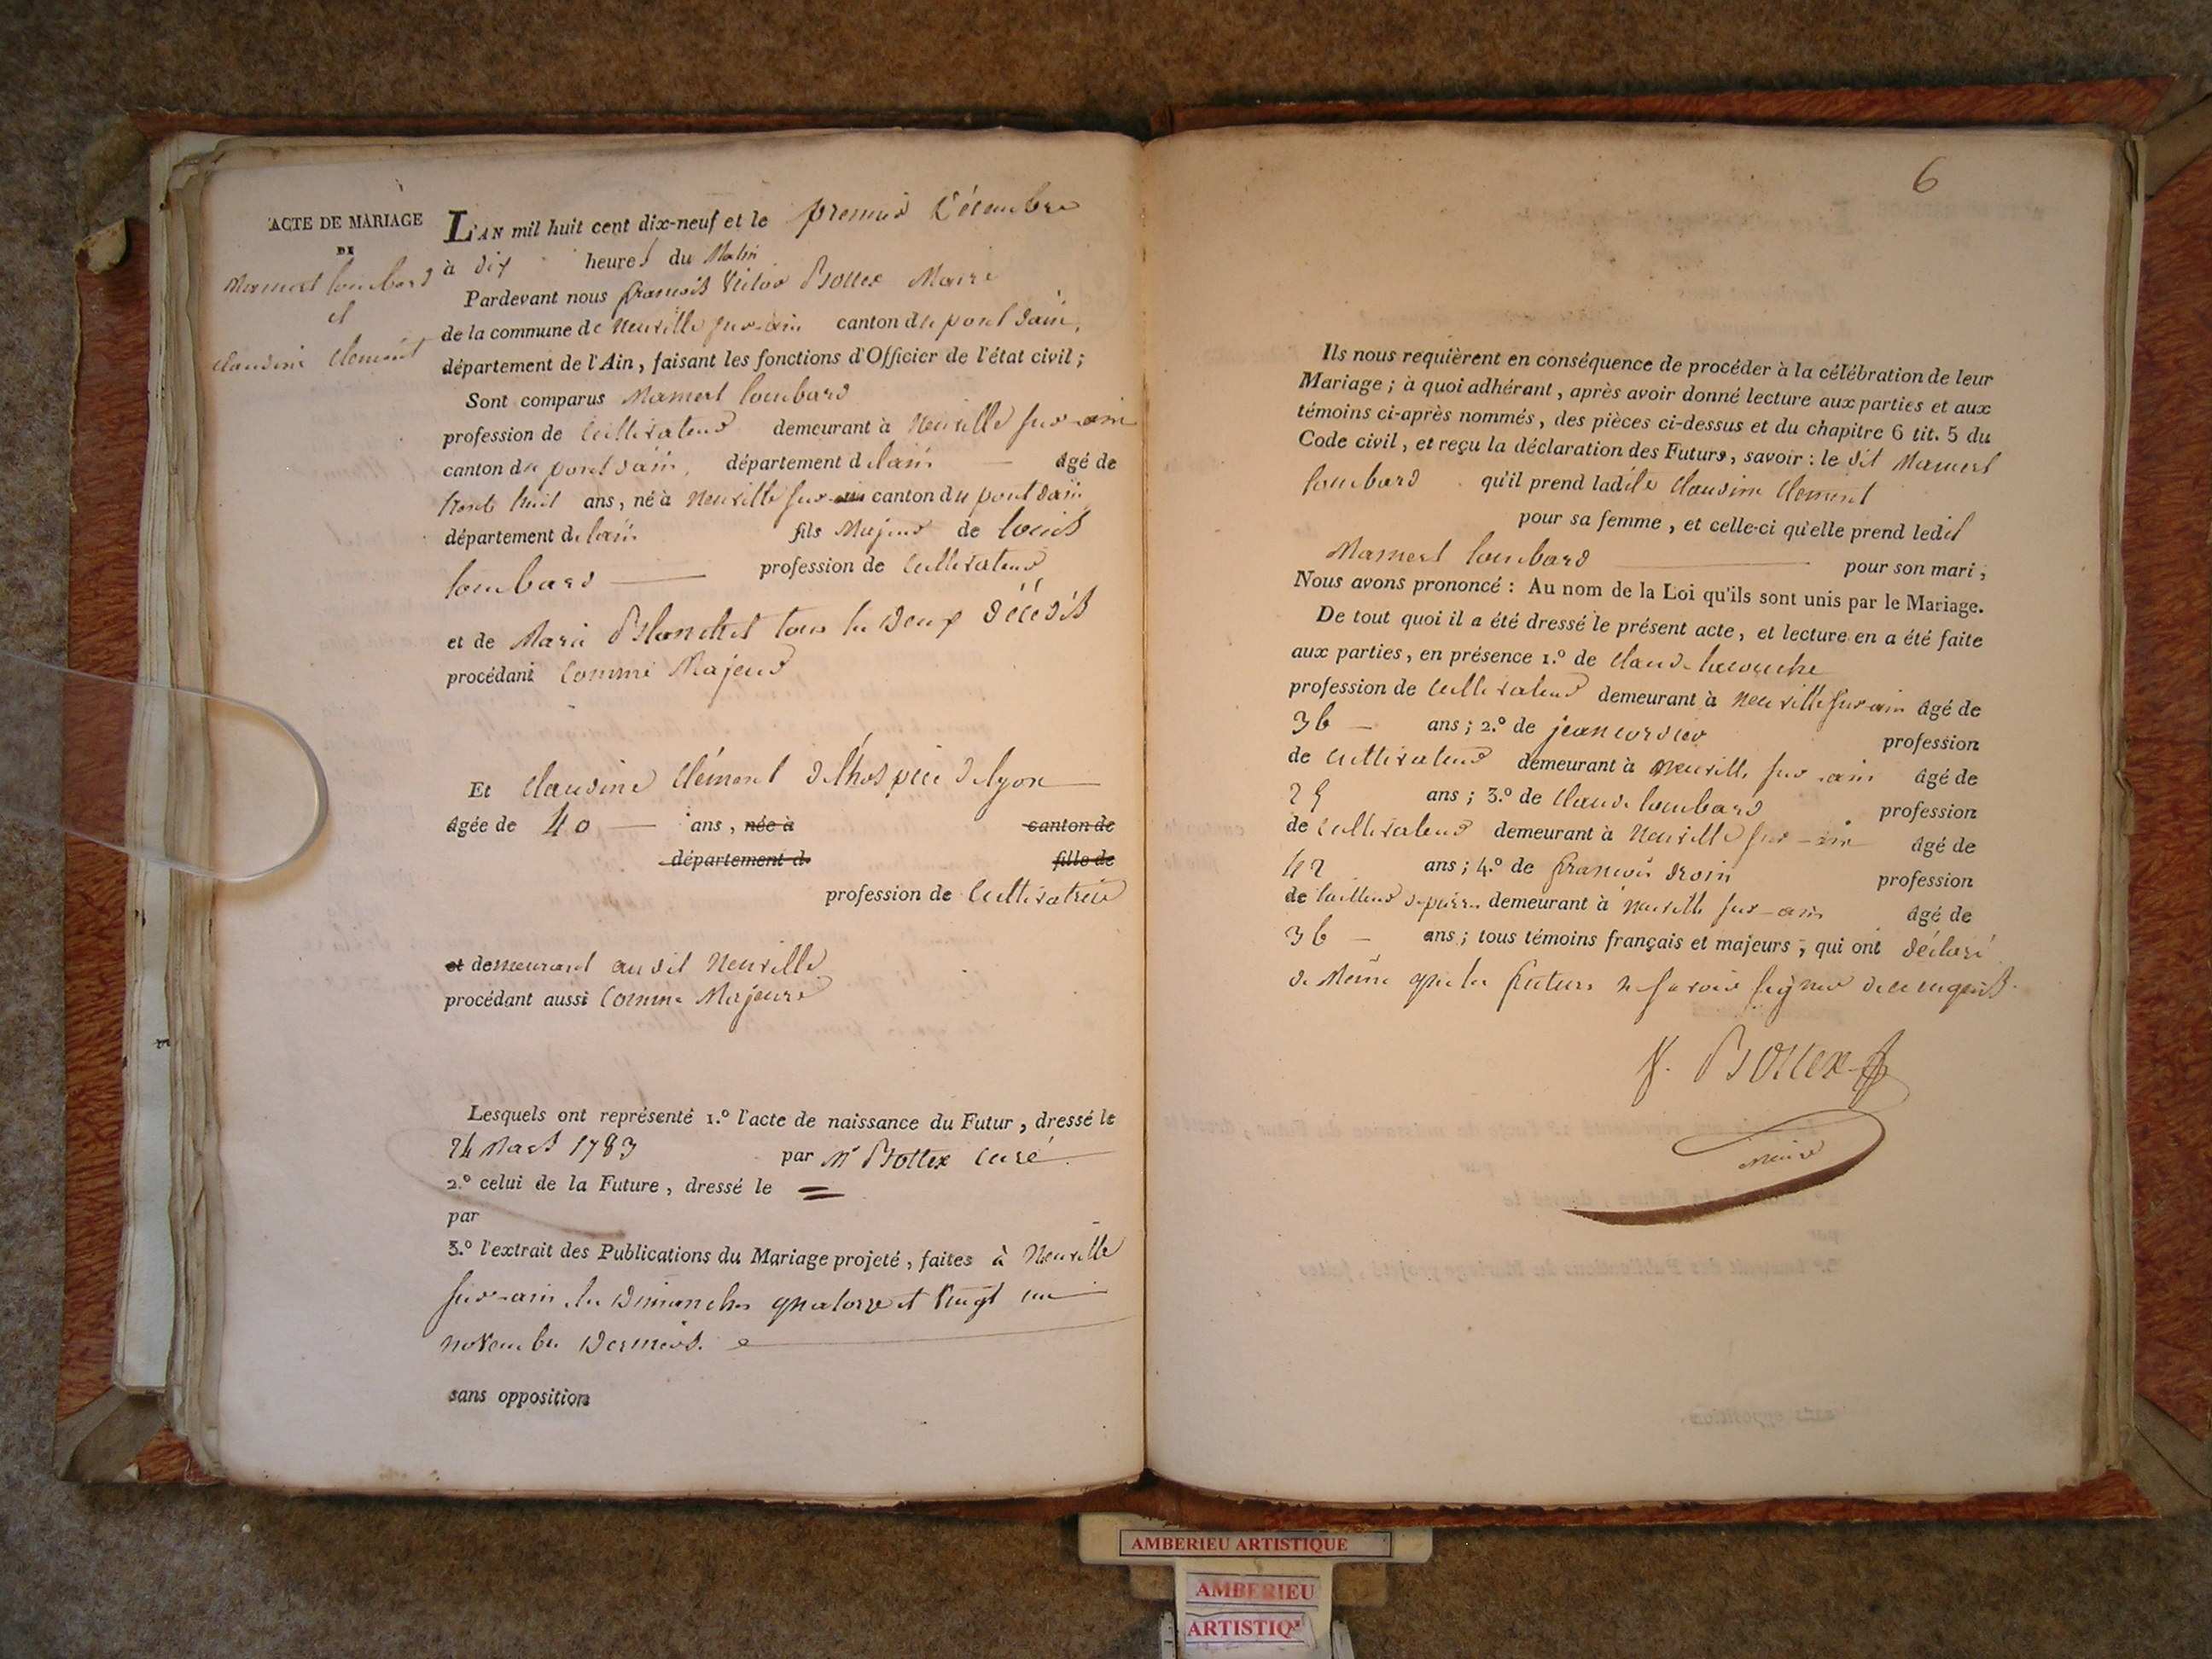 ACTE DE MARIAGE
DE
Mamert Lombard
et
Claudine Clement
L'AN mil huit cent dix-neuf et le premier Décembre
à dix heures du Matin
Pardevant nous françois Victor Bottex Maire
de la commune de Neuville sur-ain canton du pont dain,
département de l'Ain, faisant les fonctions d'Officier de l'état civil;
Sont comparus Mamert Lombard
profession de Cultivateur demeurant à Neuville sur-ain
canton du pont dain, département de lain âgé de
trente huit ans, né à Neuville sur-ain canton du pont dain
département de lain fils Majeur de Louis
Lombard profession de Cultivateur
et de Marie Blanchet tous les deux décédés
procédant Comme Majeur
Et Claudine Clément de lhospice de lyon
âgée de 40 ans, née à canton de
département d. fille de
profession de Cultivatrice
et demeurant audit Neuville
procédant aussi Comme Majeure
Lesquels ont représenté 1.º l'acte de naissance du Futur, dressé le
24 Mars 1783 par Mr Bottex Curé
2.º celui de la Future, dressé le =
par
3.º l'extrait des Publications du Mariage projeté, faites à Neuville
sur-ain, les Dimanches quatorze et Vingt un
novembre Derniers.
sans opposition
6
Ils nous requièrent en conséquence de procéder à la célébration de leur
Mariage; à quoi adhérant, après avoir donné lecture aux parties et aux
témoins ci-après nommés, des pièces ci-dessus et du chapitre 6 tit. 5 du
Code civil, et reçu la déclaration des Futurs, savoir: le dit Mamert
Lombard qu'il prend ladite Claudine Clement
pour sa femme, et celle-ci qu'elle prend ledit
Mamert Lombard pour son mari;
Nous avons prononcé: Au nom de la Loi qu'ils sont unis par le Mariage.
De tout quoi il a été dressé le présent acte, et lecture en a été faite
aux parties, en présence 1.º de Claude
profession de Cultivateur demeurant à Neuville sur-ain âgé de
36 ans; 2.º de jean cordier profession
de Cultivateur demeurant à Neuville sur-ain âgé de
25 ans; 3.º de Claude Lombard profession
de Cultivateur demeurant à Neuville sur-ain âgé de
42 ans; 4.º de françois droin profession
de tailleur de pierre demeurant à Neuville sur-ain âgé de
36 ans; tous témoins français et majeurs, qui ont déclaré
de Même que les futurs ne savoir signer de ce enquis.
V. Bottex
Maire
AMBERIEU ARTISTIQUE
AMBERIEU
ARTISTIQ